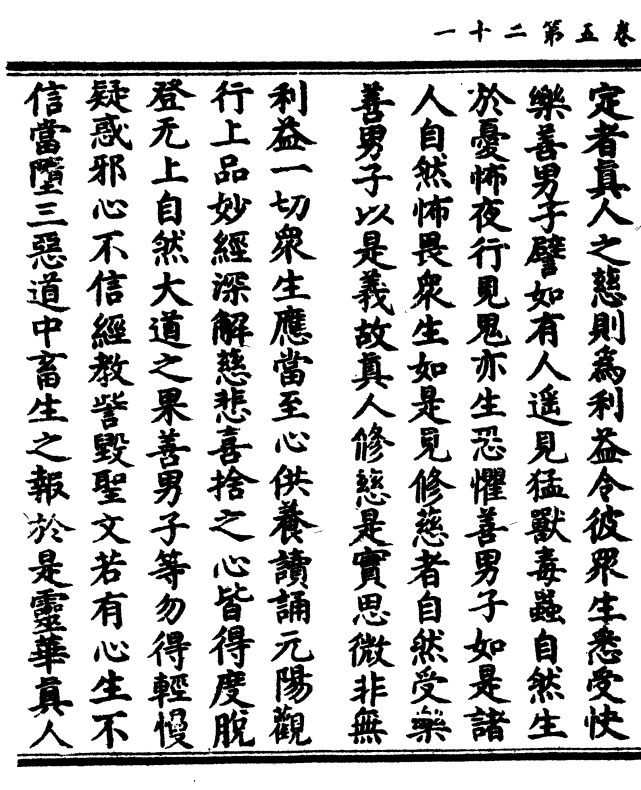 卷五第二十一
定者真人之慈則為利益令彼眾生悉受快
樂善男子譬如有人遥見猛獸毒蟲自然生
於憂怖夜行見鬼亦生恐懼善男子如是諸
人自然怖畏眾生如是見修慈者自然受樂
善男子以是義故真人修慈是實思微非無
利益一切眾生應當至心供養讀誦元陽觀
行上品妙經深解慈悲喜捨之心皆得度脫
登无上自然大道之果善男子等勿得輕慢
疑惑邪心不信經教訾毀聖文若有心生不
信當墮三惡道中畜生之報於是靈華真人